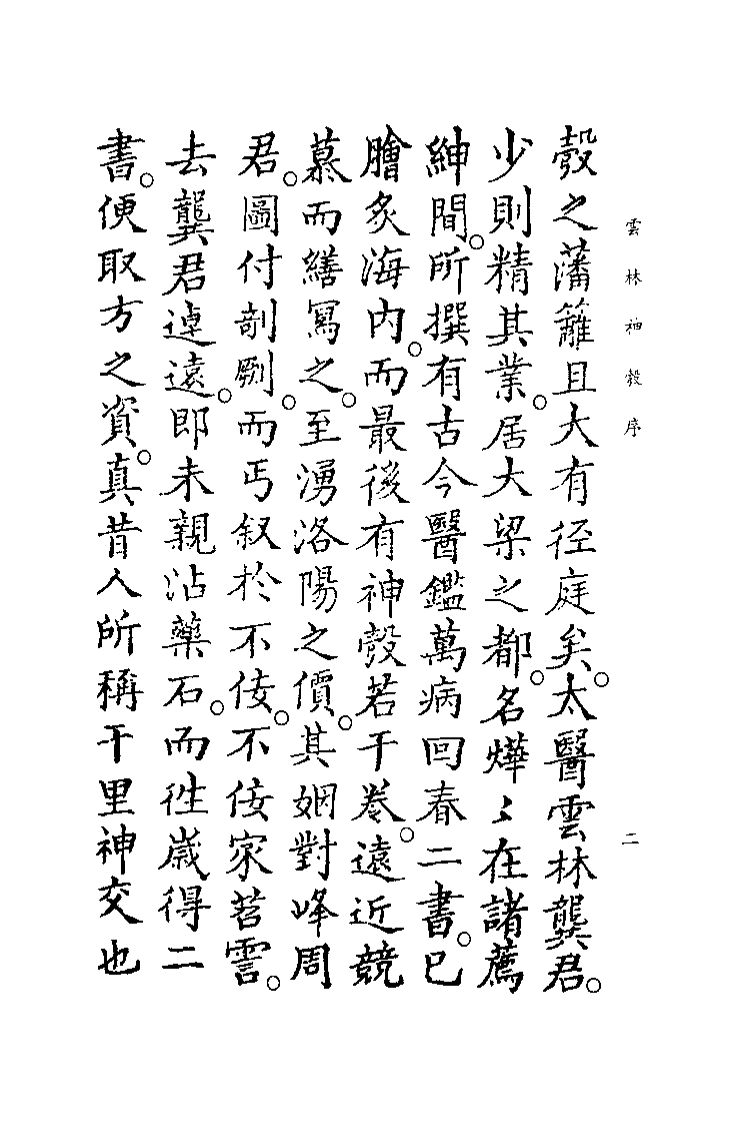 雲林神彀序
二
彀之藩籬且大有径庭矣。太醫雲林龔君。
少則精其業。居大梁之都。名燁〻在諸薦
紳間。所撰有古今醫鑑萬病回春二書。已
膾炙海内。而最後有神彀若干卷。遠近競
慕而繕寫之。至湧洛陽之價。其姻對峰周
君。圖付剞劂。而丐叙於不佞。不佞家苕霅。
去龔君逴遠。即未親沾藥石。而徃歲得二
書。便取方之資。真昔人所稱千里神交也